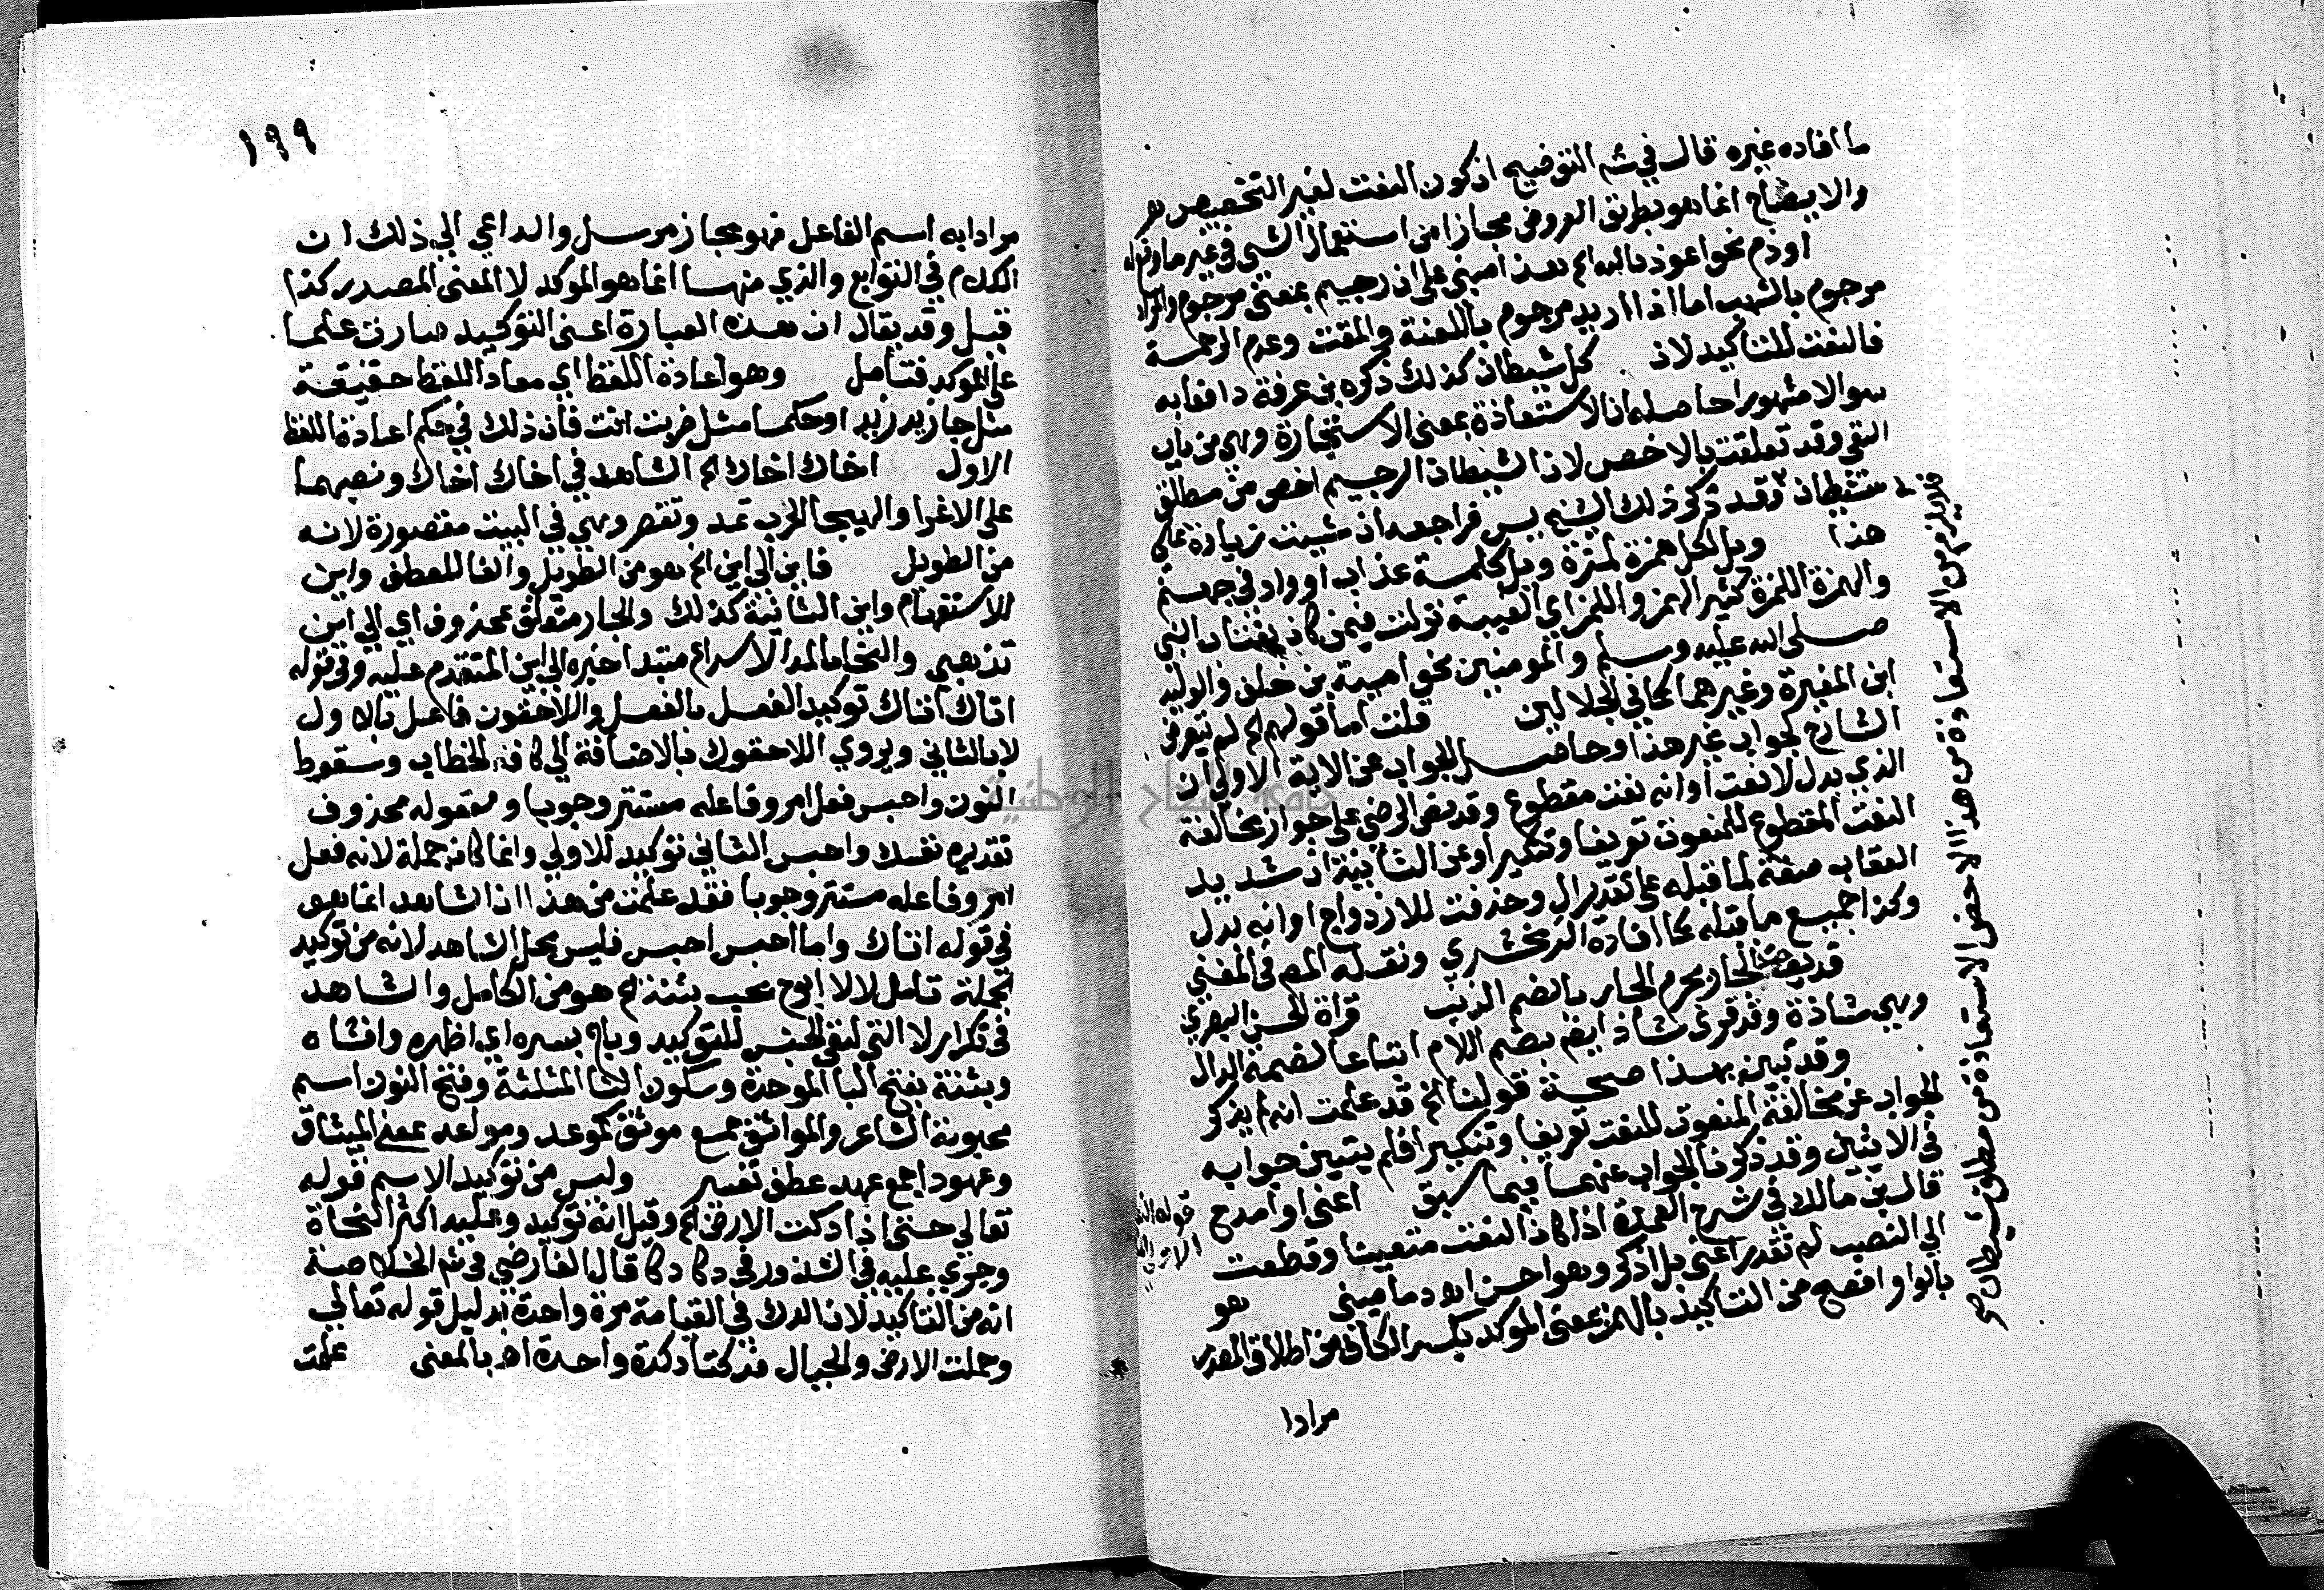 ما افاده غيره قال في شم التوضيح اذ كون النعت لغير التخصيص
والايضاح انما هو بطريق العروض مجازا من استعمال الشي في غير ما وضع له
او ذم نحو اعوذ بالله الخ هذا مبني على ان رجيم بمعنى مرجوم والمراد
مرجوم بالشهب اما اذا اريد مرجوم باللعنة والمقت وعدم الرحمة
فالنعت للتاكيد لان كل شيطان كذلك ذكره بن عرفة دافعا به
سوالا مشهورا حاصله ان الاستعاذة بمعنى الاستجارة وهي من باب
النفي وقد تعلقت بالاخص لان الشيطان الرجيم اخص من مطلق
شيطان فقد ذكر ذلك الشيخ يس فراجعه ان شيت زيادة على
هذا ويل لكل همزة لمزة ويل كلمة عذاب او واد في جهنم
والهمزة اللمزة كثير الهمز واللمز اي الغيبة نزلت فيمن كان يغتاب النبي
صلى الله عليه وسلم والمومنين نحو امية بن خلف والوليد
ابن المغيرة وغيرهما كما في الجلالين قلت اما قولهم الخ لم يتعرض
الشارح لجواب غير هذا وحاصل الجواب عن الاية الاولى ان
الذي بدل لا نعت او انه نعت مقطوع وقد نص الرضي على جواز مخالفة
النعت المقطوع للمنعوت تعريفا وتنكيرا وعن الثانية ان شديد
العقاب صفة لما قبله على تقدير ال وحذفت للازدواج او انه بدل
وكذا جميع ما قبله كما افاده الزمخشري ونقله المص في المغني
قد يوخذ الجار بجرم الجار بالضم الذنب قراة الحسن البصري
وهي شاذة وقد قري شاذا ايض بضم اللام اتباعا لضمة الدال
وقد تبين بهذا صحة قولنا الخ قد علمت انه لم يذكر
الجواب عن مخالفة المنعوت للنعت تعريفا وتنكيرا فلم يتبين جوابه
في الايتين وقد ذكرنا الجواب عنهما فيما سبق اعني او امدح
قال بن مالك في شرح العمدة اذا كان النعت متعينا وقطعت
الي النصب لم تقدر اعني بل اذكر وهو احسن اه دماميني هو
بالواو افصح من التاكيد بالهمز بمعنى الموكد بكسر الكاف من اطلاق المصدر
مرادا
فلا يلزم من الاستعاذة من هذا الاخص الاستعاذة من مطلق شيطان صح
١٩٩
مرادا به اسم الفاعل فهو مجاز مرسل والداعي الي ذلك ان
الكلام في التوابع والذي منها انما هو الموكد لا المعنى المصدر كذا
قيل وقد يقال ان هذه العبارة اعني التوكيد صارت علما
على الموكد فتامل وهو اعادة اللفظ اي معاد اللفظ حقيقة
مثل جا زيد زيد او حكما مثل ضربت انت فان ذلك في حكم اعادة اللفظ
الاول اخاك اخاك الخ الشاهد في اخاك اخاك ونصبهما
على الاغرا والهيجا الحرب تمد وتقصر وهي في البيت مقصورة لانه
من الطويل فاين الي اين الخ هو من الطويل والفا للعطف واين
للاستفهام واين الثانية كذلك والجار متعلق محذوف اي الي اين
تذهبي والنجا بالمد الاسراع مبتدا خبره الي اين المتقدم عليه وفي قوله
اتاك اتاك توكيد الفعل بالفعل واللاحقون فاعل بالاول
لا بالثاني ويروي اللاحقوك بالاضافة الي كاف الخطاب وسقوط
النون واحبس فعل امر وفاعله مستتر وجوبا ومفعوله محذوف
تقديره نفسك واحبس الثاني توكيد للاولي وانما كان جملة لانه فعل
امر وفاعله مستتر وجوبا فقد علمت من هذا ان الشاهد انما هو
في قوله اتاك واما احبس احبس فليس محل الشاهد لانه من توكيد
الجملة تامل لا لا ابوح بحب بثنة الخ هو من الكامل والشاهد
في تكرار لا التي لنفي الجنس للتوكيد وباح بسره اي اظهره وافشاه
وبثنة بفتح البا الموحدة وسكون الثا المثلثة وفتح النون اسم
محبوبة الشاعر والمواثق جمع موثق كموعد ومواعد بمعنى الميثاق
وعهودا جمع عهد عطف تفسير وليس من توكيد الاسم قوله
تعالي حتى اذا دكت الارض الخ وقيل انه توكيد وعليه اكثر النحاة
وجري عليه في الشذور في دكا دكا قال الفارضي في شم الخلاصة
انه من التاكيد لان الدك في القيامة مرة واحدة بدليل قوله تعالي
وحملت الارض والجبال فدكتا دكة واحدة اه بالمعنى علمت